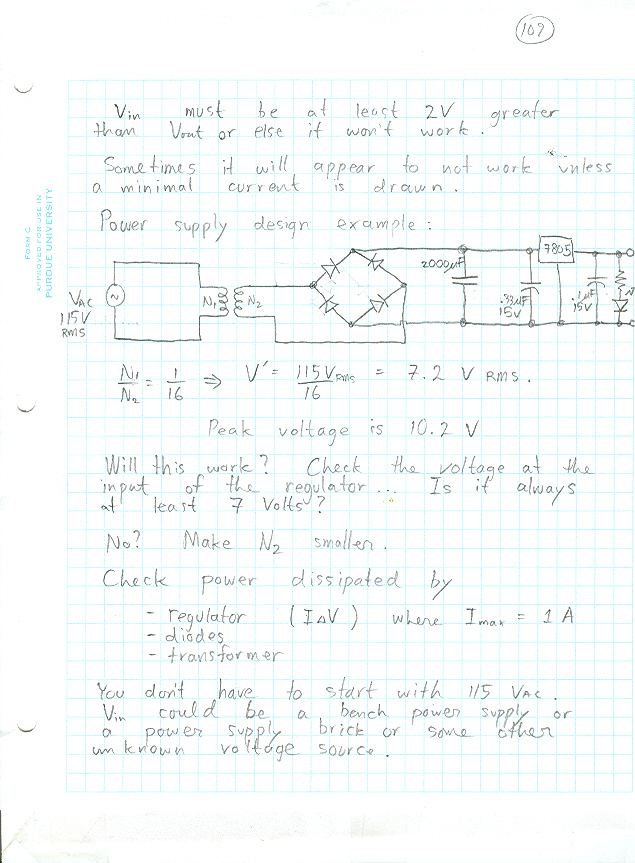 109
Vin must be at least 2V greater
than Vout or else it won't work.
Sometimes it will appear to not work unless
a minimal current is drawn.
Power supply design example:
FORM C
APPROVED FOR USE IN
PURDUE UNIVERSITY
7805
2000µF
VAC
115V
RMS
~
N1
N2
.33µF
15V
.1µF
15V
N1/N2 = 1/16 ⇒ V' = 115VRMS/16 = 7.2 V RMS.
Peak voltage is 10.2 V
Will this work? Check the voltage at the
input of the regulator... Is it always
at least 7 Volts?
No? Make N2 smaller.
Check power dissipated by
- regulator (I∆V) where Imax = 1 A
- diodes
- transformer
You don't have to start with 115 VAC.
Vin could be a bench power supply or
a power supply brick or some other
unknown voltage source.